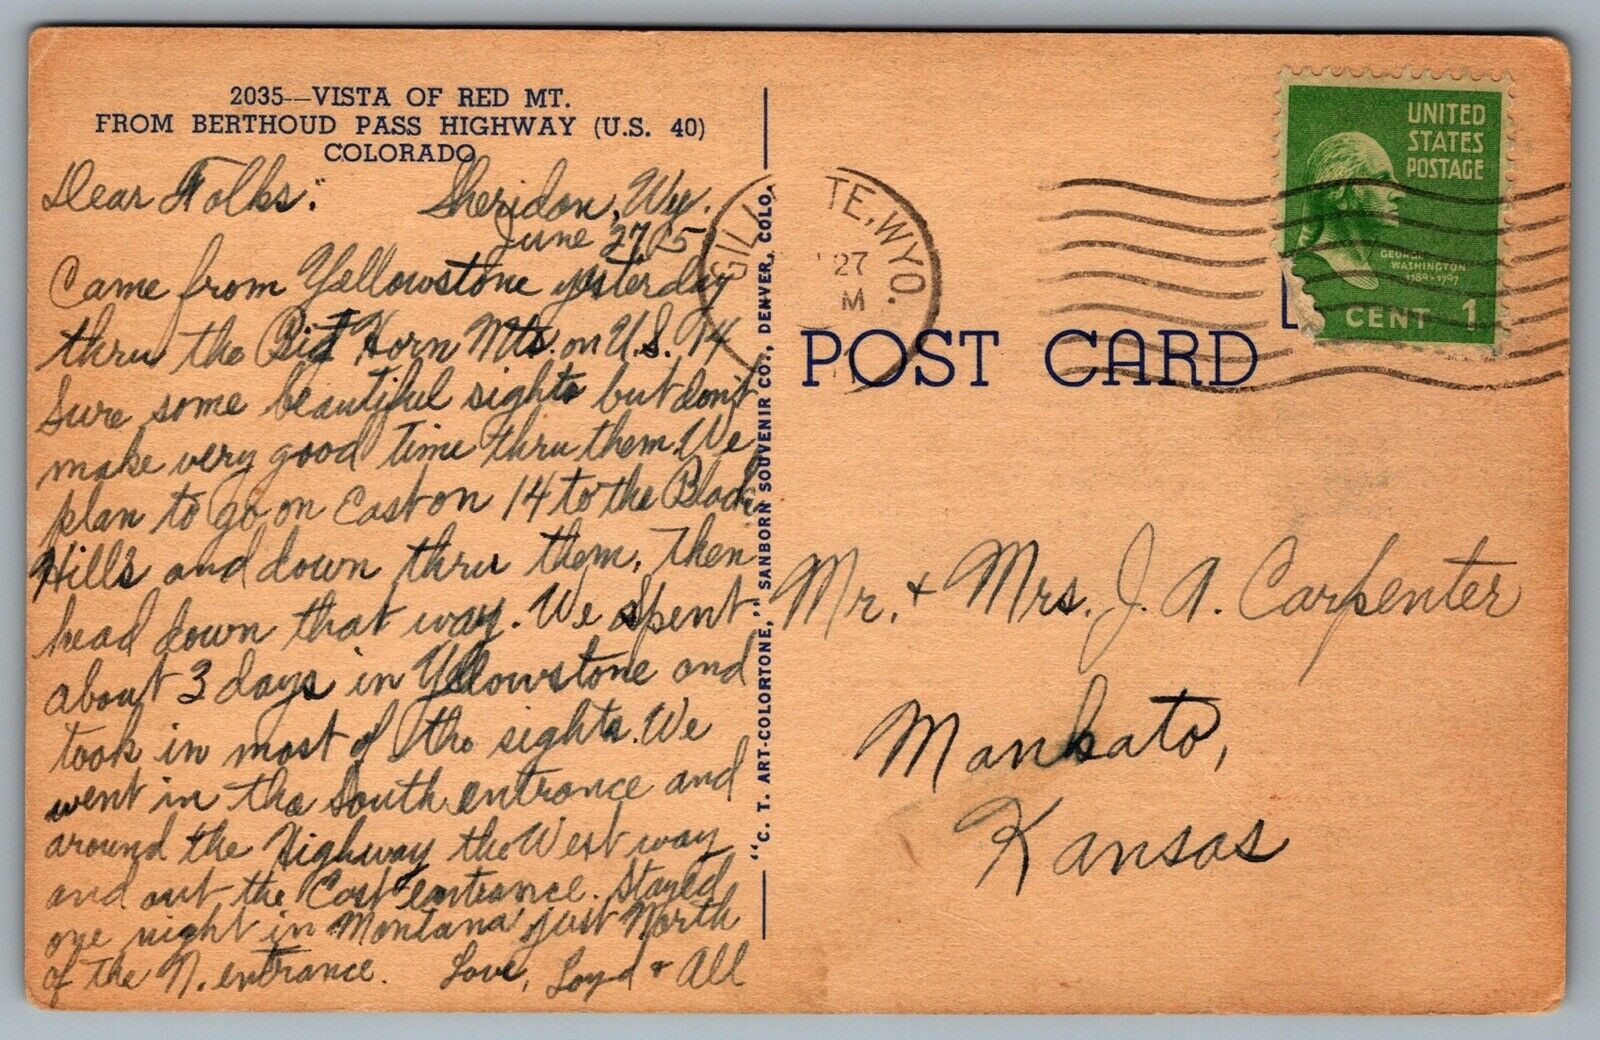 2035—VISTA OF RED MT.
FROM BERTHOUD PASS HIGHWAY (U.S. 40)
COLORADO
Dear Folks: Sheridon, Wy.
June 27, 5
Came from Yellowstone yesterday
thru the Big Horn Mts. on U.S. 14
Sure some beautiful sights but don't
make very good time thru them. We
plan to go on East on 14 to the Black
Hills and down thru them. Then
head down that way. We spent
about 3 days in Yellowstone and
took in most of the sights. We
went in the South entrance and
around the Highway the West way
and out the East entrance. Stayed
one night in Montana just North
of the N. entrance. Love, Loyd & All
"C. T. ART-COLORTONE," SANBORN SOUVENIR CO., DENVER, COLO.
GILL TE, WYO.
27
M
UNITED
STATES
POSTAGE
GEORGE
WASHINGTON
1789-1797
CENT 1
POST CARD
Mr. & Mrs. J. A. Carpenter
Mankato,
Kansas